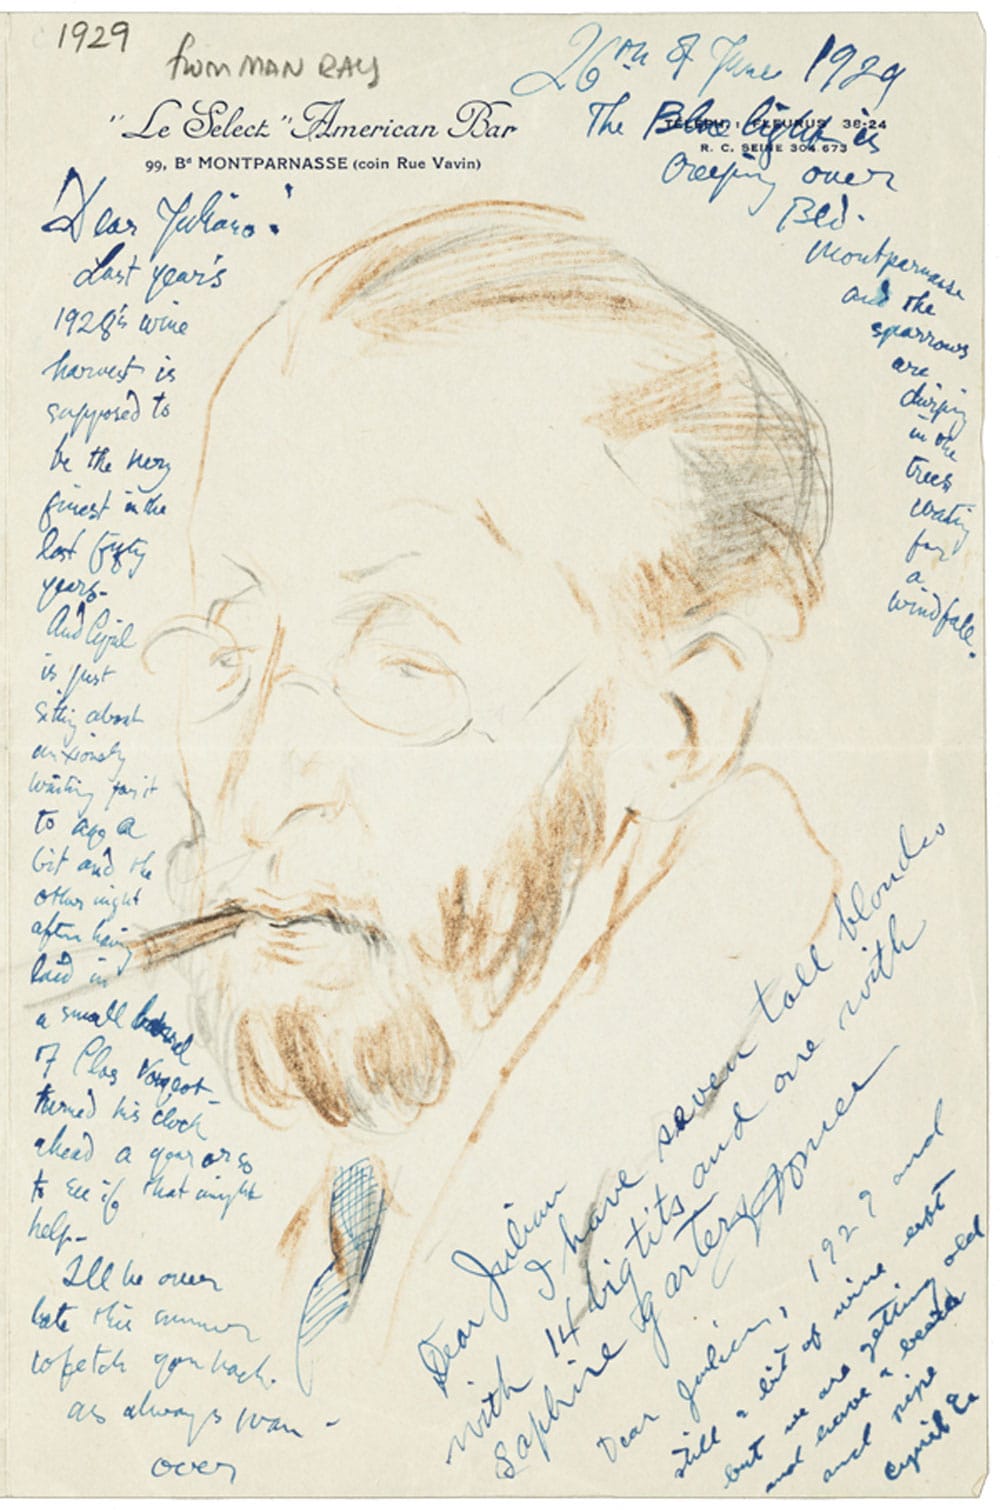 1929
from MAN RAY
26th of June 1929
"Le Select" American Bar
99, Bd MONTPARNASSE (coin Rue Vavin)
TÉLÉPH. : FLEURUS 38-24
R. C. SEINE 304.673
The Blue light is
creeping over
Bld.
Montparnasse
and the
sparrows
are
chirping
in the
trees
waiting
for
a
windfall.
Dear Juliano:
Last year's
1928's wine
harvest is
supposed to
be the very
finest in the
last fifty
years-
And Cyril
is just
sitting about
anxiously
waiting for it
to age a
bit and the
other night
after having
laid in
a small barrel
of Clos Vougeot-
turned his clock
ahead a year or so
to see if that might
help-
I'll be over
late this summer
to fetch you back.
as always
over
Dear Julian
I have seven tall blondes
with 14 big tits and one with
saphire garters
Dear Julian, 1929 and
still a bit of wine left
but we are getting old
and have a beard
and pipe
Cyril